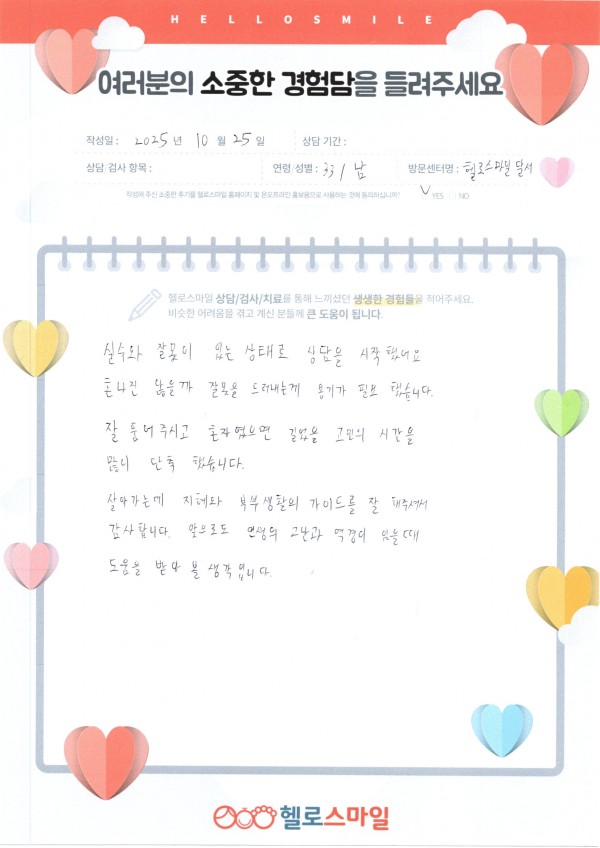 HELLOSMILE
여러분의 소중한 경험담을 들려주세요
작성일 : 2025 년 10 월 25 일 상담 기간 :
상담 검사 항목 : 연령 성별 : 33 / 남 방문센터명 : 헬로스마일 달서
작성해 주신 소중한 후기를 헬로스마일 홈페이지 및 온오프라인 홍보용으로 사용하는 것에 동의하십니까? ✓ YES NO
헬로스마일 상담/검사/치료를 통해 느끼셨던 생생한 경험들을 적어주세요.
비슷한 어려움을 겪고 계신 분들께 큰 도움이 됩니다.
실수와 잘못이 있는 상태로 상담을 시작했어요
혼나진 않을까 잘못을 드러내는게 용기가 필요 했습니다.
잘 풀어주시고 혼자였으면 길었을 고민의 시간을
많이 단축 했습니다.
살아가는데 지혜와 부부생활의 가이드를 잘 해주셔서
감사합니다. 앞으로도 인생의 고난과 역경이 있을때
도움을 받아 볼 생각입니다.
헬로스마일